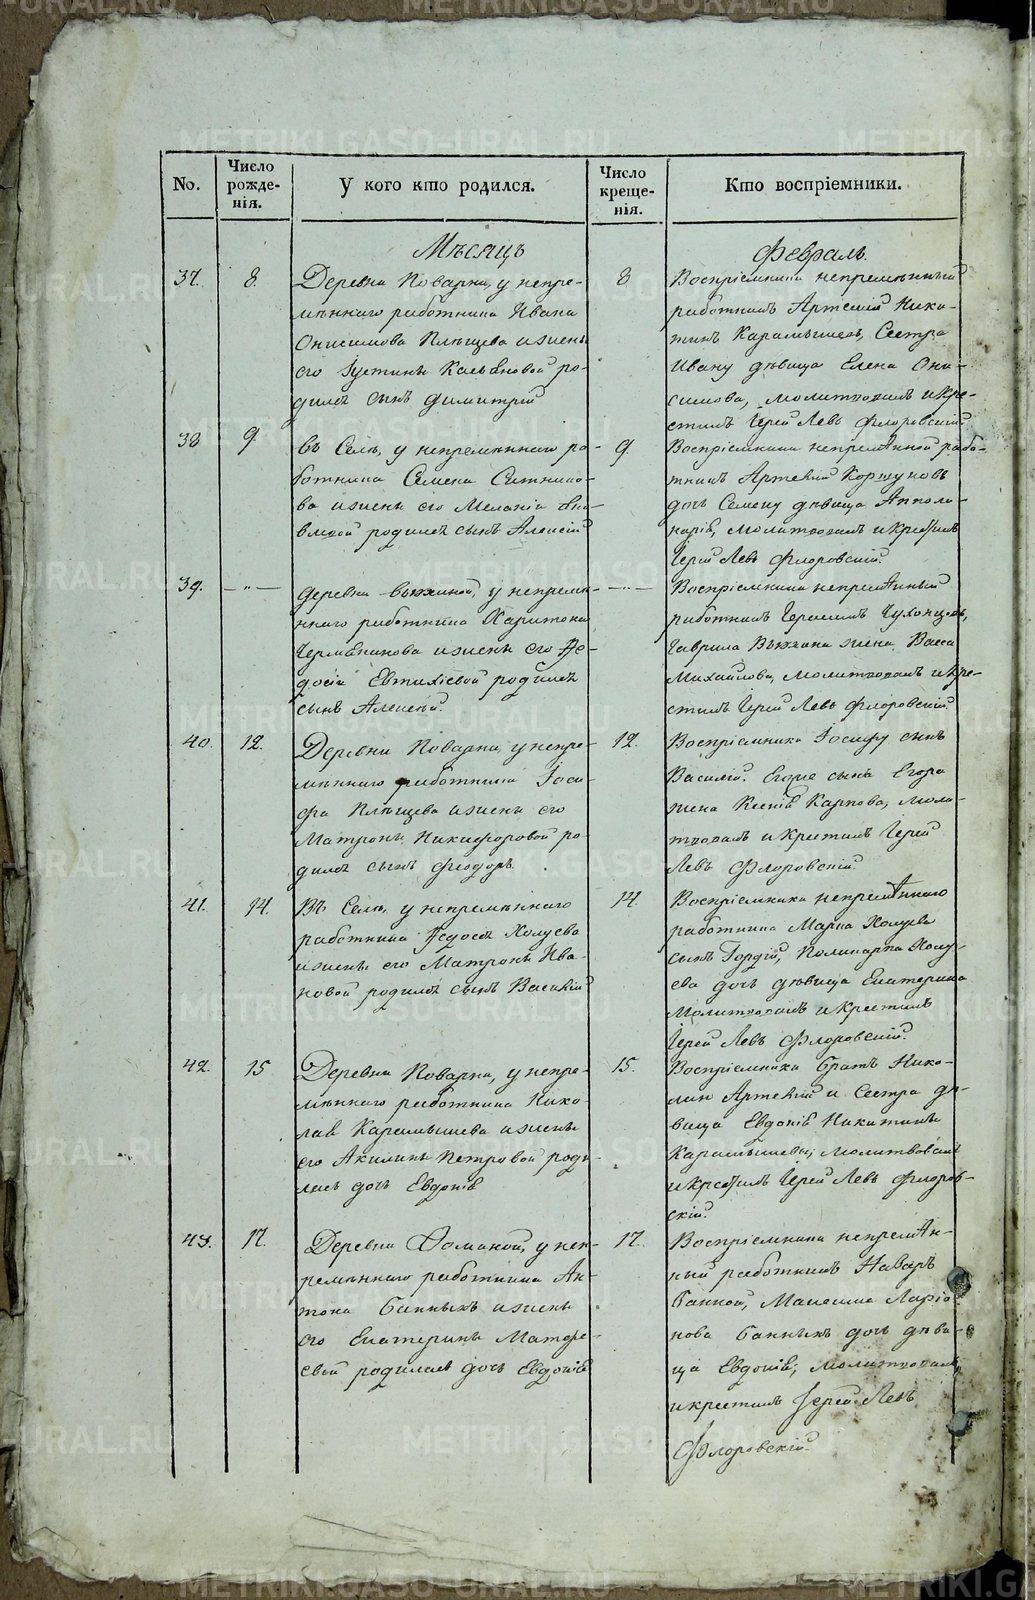 No.
Число рожде-нія.
У кого кто родился.
Число креще-нія.
Кто воспріемники.
Мѣсяцъ
Февраль.
37.
8.
Деревни Поварни, у непре-
мѣннаго работника Ивана
Онисимова Плѣщева и жены
его Іустины Касьяновой ро-
дился сынъ Димитрій
8
Воспріемники непремѣнный
работникъ Артемій Ники-
тинъ Карамышевъ, Сестра
Ивану дѣвица Елена Они-
симова, молитвовалъ и кре-
стилъ Іерей Левъ Флоровскій
38
9.
въ Селѣ, у непремѣннаго ра-
ботника Семена Ситнико-
ва и жены его Меланіи
родился сынъ Алексій
9.
Воспріемники непремѣнной рабо-
тникъ Артемій Коршуновъ
дочь Семену дѣвица Апполи-
нарія, молитвовалъ и крестилъ
Іерей Левъ Флоровскій.
39.
— " —
деревни Выжиной, у непремѣ-
ннаго работника Харитона
и жены его Ѳе-
досіи Евтихіевой родился
сынъ Алексій.
— " —
Воспріемники непремѣнный
работникъ Герасимъ Чухонцевъ,
Гаврила жена Васса
Михайлова, молитвовалъ и кре-
стилъ Іерей Левъ Флоровскій
40.
12.
Деревни Поварни, у непре-
мѣннаго работника Іоси-
фа Плѣщева и жены его
Матроны Никифоровой ро-
дился сынъ Феодоръ.
12.
Воспріемники Іосифу сынъ
Василій. Егора
жена Ксенія Карпова, моли-
твовалъ и крестилъ Іерей
Левъ Флоровскій
41.
14.
Въ Селѣ, у непремѣннаго
работника Федоса Холуева
и жены его Матроны Ива-
новой родился сынъ Василій
14.
Воспріемники непремѣннаго
работника Марка Холуева
сынъ Гордій, Поликарпа Холу-
ева дочь дѣвица Екатерина
Молитвовалъ и крестилъ
Іерей Левъ Флоровскій.
42.
15
Деревни Поварни, у непре-
мѣннаго работника Нико-
лая Карамышева и жены
его Акилины Петровой роди-
лась дочь Евдокія
15.
Воспріемники братъ Нико-
лаю Артемій и Сестра дѣ-
вица Евдокія Никитины
Карамышевы, молитвовалъ
и крестилъ Іерей Левъ Флоров-
скій.
43.
17.
Деревни у неп-
ремѣннаго работника Ан-
тона Банныхъ и жены
его Екатерины Матфе-
евой родилась дочь Евдокія
17.
Воспріемники непремѣн-
ный работникъ Назаръ
Банной, Максима Ларіо-
нова Банныхъ дочь дѣви-
ца Евдокія, молитвовалъ
и крестилъ Іерей Левъ
Флоровскій
METRIKI.GASO-URAL.RU